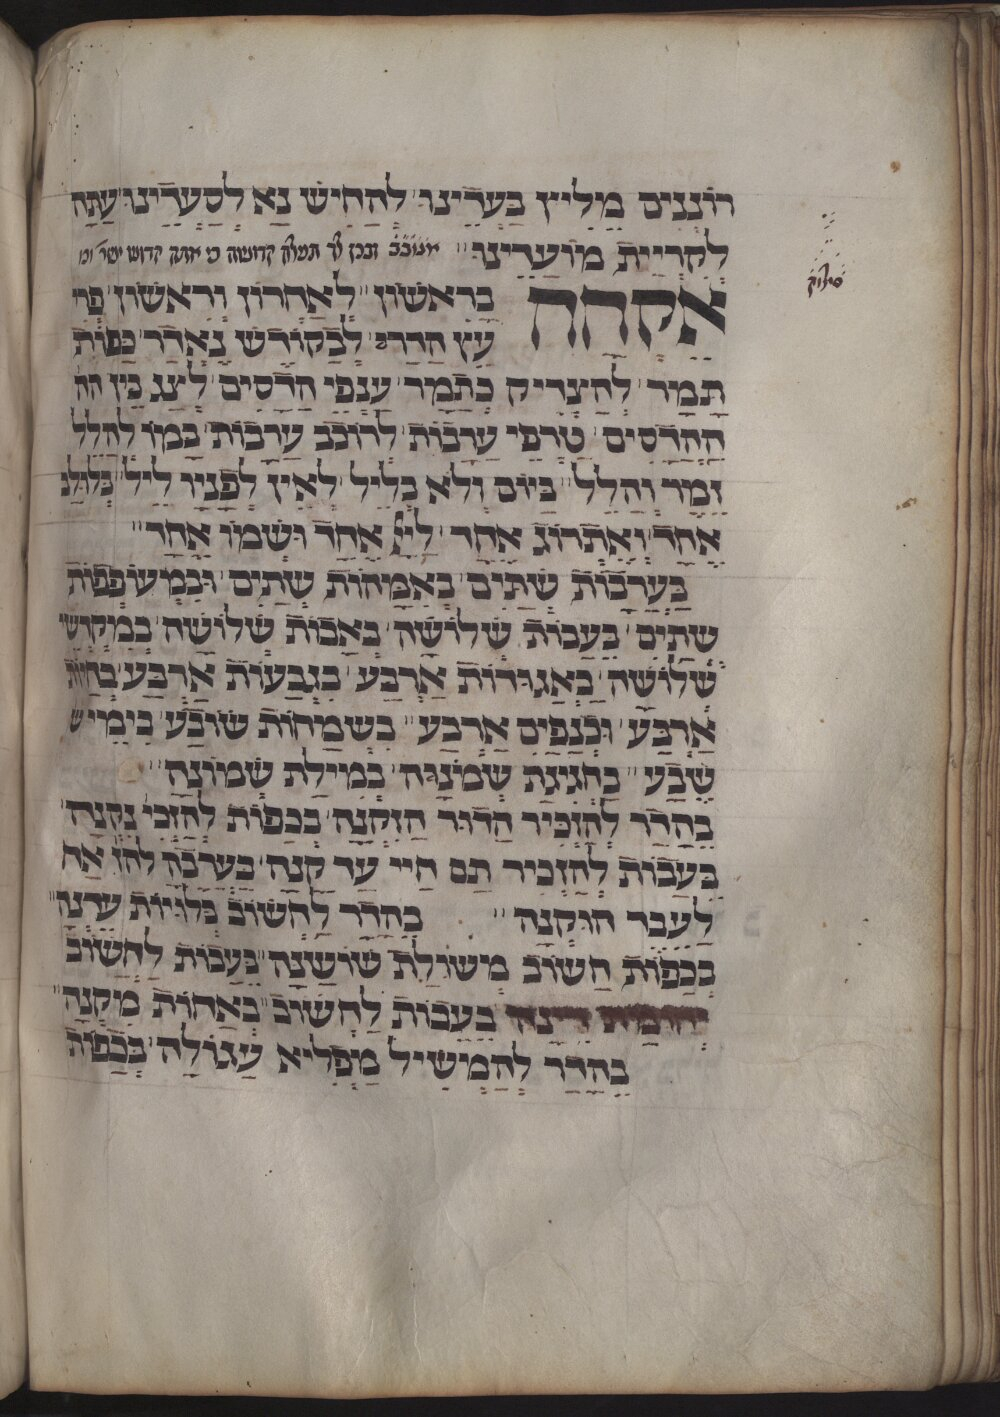 רוֹנְנִים מֵלִיץ בַּעֲדֵינוּ לְהָחִישׁ נָא לְסַעֲדֵינוּ עַתָּה
לְקִרְיַת מוֹעֲדֵינוּ
סילוק
אֶקְחָה בָרִאשׁוֹן לְאַחֲרוֹן וְרִאשׁוֹן פְּרִי
עֵץ הָדָר לַבַּקוֹדֶשׁ נֶאְדָּר כַּפּוֹת
תָּמָר לְהַצְדִּיק כְּתָמָר עַנְפֵי הֲדַסִּים לְצַג בֵּין הַ
הַהֲדַסִּים טַרְפֵי עֲרָבוֹת לְרוֹכֵב עֲרָבוֹת כְּמוֹ לְחַלֵּל
זֶמֶר וְהַלֵּל בַּיּוֹם וְלֹא בְּלֵיל לְאֵין לְפָנָיו לֵיל בְּלוּלָב
אֶחָד וְאֶתְרוֹג אֶחָד לַייָ אֶחָד וּשְׁמוֹ אֶחָד
בַּעֲרָבוֹת שְׁתַּיִם כְּאִמָּהוֹת שְׁתַּיִם וּבִמְעוֹפְפוֹת
שְׁתַּיִם בַּעֲבוֹת שְׁלוֹשָׁה כְּאָבוֹת שְׁלוֹשָׁה כִּמְקֻדָּשֵׁי
שְׁלוֹשָׁה בַּאֲגֻדּוֹת אַרְבַּע כִּגְבָעוֹת אַרְבַּע כְּחַיּוֹת
אַרְבַּע וּכְנָפַיִם אַרְבַּע בְּשִׂמְחוֹת שׂוֹבַע כִּימֵי שׁ
שֶׁבַע בַּחֲגִיגַת שְׁמוֹנָה כְּמִילַת שְׁמוֹנָה
בְּהָדָר לְהַזְכִּיר הִדּוּר הַזִּקְנָה בְּכַפּוֹת לְהַזְכִּי נֶקְנָה
בַּעֲבוֹת לְהַזְכִּיר תָּם חַיֵּי עַד קָנָה בַּעֲרָבָה לְהַז אֶת
לְעֶבֶד חוּקְנָה בְּהָדָר לַחְשׁוֹב בְּלוּיוֹת עֶדְנָה
בְּכַפּוֹת חֲשׁוֹב מְשׁוּלַת שׁוֹשַׁנָּה בַּעֲבוֹת לַחְשׁוֹב
בַּעֲבוֹת לַחְשׁוֹב כְּאָחוֹת מִקָּנָה
בְּהָדָר לְהַמְשִׁיל מַפְלִיא עֲגוּלָה בְּכַפּוֹת